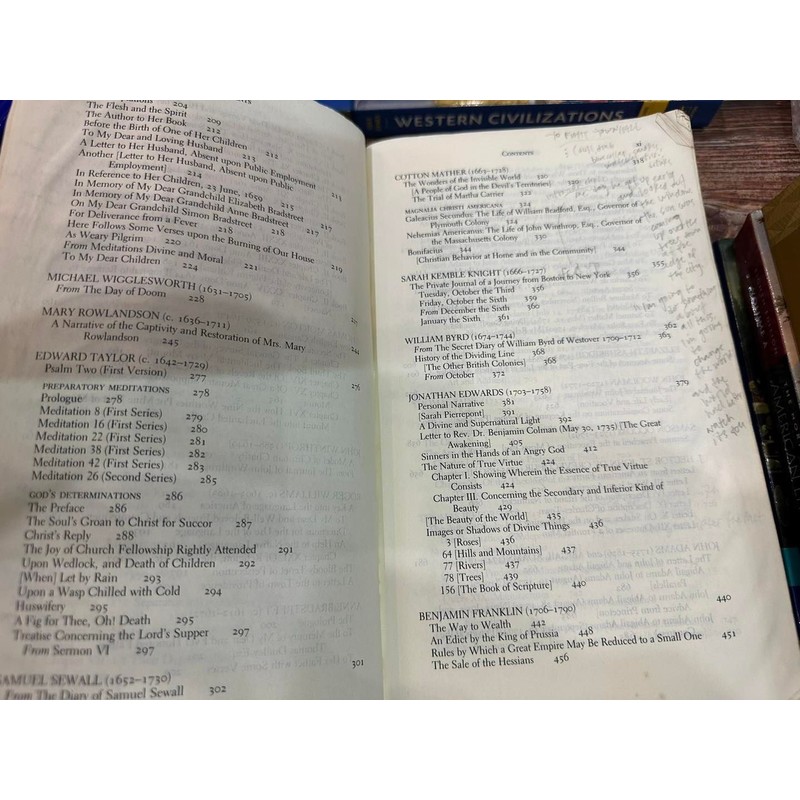 WESTERN CIVILIZATIONS
204
The Flesh and the Spirit
209
The Author to Her Book 212
Before the Birth of One of Her Children 212
To My Dear and Loving Husband 213
A Letter to Her Husband, Absent upon Public Employment 213
Another [Letter to Her Husband, Absent upon Public
Employment] 214
In Reference to Her Children, 23 June, 1659 215
In Memory of My Dear Grandchild Elizabeth Bradstreet 217
In Memory of My Dear Grandchild Anne Bradstreet 217
On My Dear Grandchild Simon Bradstreet 218
For Deliverance from a Fever 218
Here Follows Some Verses upon the Burning of Our House 219
As Weary Pilgrim 220
From Meditations Divine and Moral 221
To My Dear Children 224
MICHAEL WIGGLESWORTH (1631–1705)
From The Day of Doom 228
MARY ROWLANDSON (c. 1636–1711)
A Narrative of the Captivity and Restoration of Mrs. Mary
Rowlandson 245
EDWARD TAYLOR (c. 1642–1729)
Psalm Two (First Version) 277
276
PREPARATORY MEDITATIONS 278
Prologue 278
Meditation 8 (First Series) 279
Meditation 16 (First Series) 280
Meditation 22 (First Series) 281
Meditation 38 (First Series) 282
Meditation 42 (First Series) 283
Meditation 26 (Second Series) 285
GOD'S DETERMINATIONS 286
The Preface 286
The Soul's Groan to Christ for Succor 287
Christ's Reply 288
The Joy of Church Fellowship Rightly Attended 291
Upon Wedlock, and Death of Children 292
[When] Let by Rain 293
Upon a Wasp Chilled with Cold 294
Huswifery 295
A Fig for Thee, Oh! Death 295
Treatise Concerning the Lord's Supper 297
From Sermon VI 297
SAMUEL SEWALL (1652–1730) 301
From The Diary of Samuel Sewall 302
CONTENTS xi
COTTON MATHER (1663–1728) 318
The Wonders of the Invisible World 320
[A People of God in the Devil's Territories] 320
The Trial of Martha Carrier 322
MAGNALIA CHRISTI AMERICANA 324
Galeacius Secundus: The Life of William Bradford, Esq., Governor of
Plymouth Colony 324
Nehemias Americanus: The Life of John Winthrop, Esq., Governor of
the Massachusetts Colony 330
Bonifacius 344
[Christian Behavior at Home and in the Community] 344
SARAH KEMBLE KNIGHT (1666–1727) 355
The Private Journal of a Journey from Boston to New York 356
Tuesday, October the Third 356
Friday, October the Sixth 359
From December the Sixth 360
January the Sixth 361
WILLIAM BYRD (1674–1744) 362
From The Secret Diary of William Byrd of Westover 1709–1712 363
History of the Dividing Line 368
[The Other British Colonies] 368
From October 372
JONATHAN EDWARDS (1703–1758) 379
Personal Narrative 381
[Sarah Pierrepont] 391
A Divine and Supernatural Light 392
Letter to Rev. Dr. Benjamin Colman (May 30, 1735) [The Great
Awakening] 405
Sinners in the Hands of an Angry God 412
The Nature of True Virtue 424
Chapter I. Showing Wherein the Essence of True Virtue
Consists 424
Chapter III. Concerning the Secondary and Inferior Kind of
Beauty 429
[The Beauty of the World] 435
Images or Shadows of Divine Things 436
3 [Roses] 436
64 [Hills and Mountains] 437
77 [Rivers] 437
78 [Trees] 439
156 [The Book of Scripture] 440
BENJAMIN FRANKLIN (1706–1790) 440
The Way to Wealth 442
An Edict by the King of Prussia 448
Rules by Which a Great Empire May Be Reduced to a Small One 451
The Sale of the Hessians 456